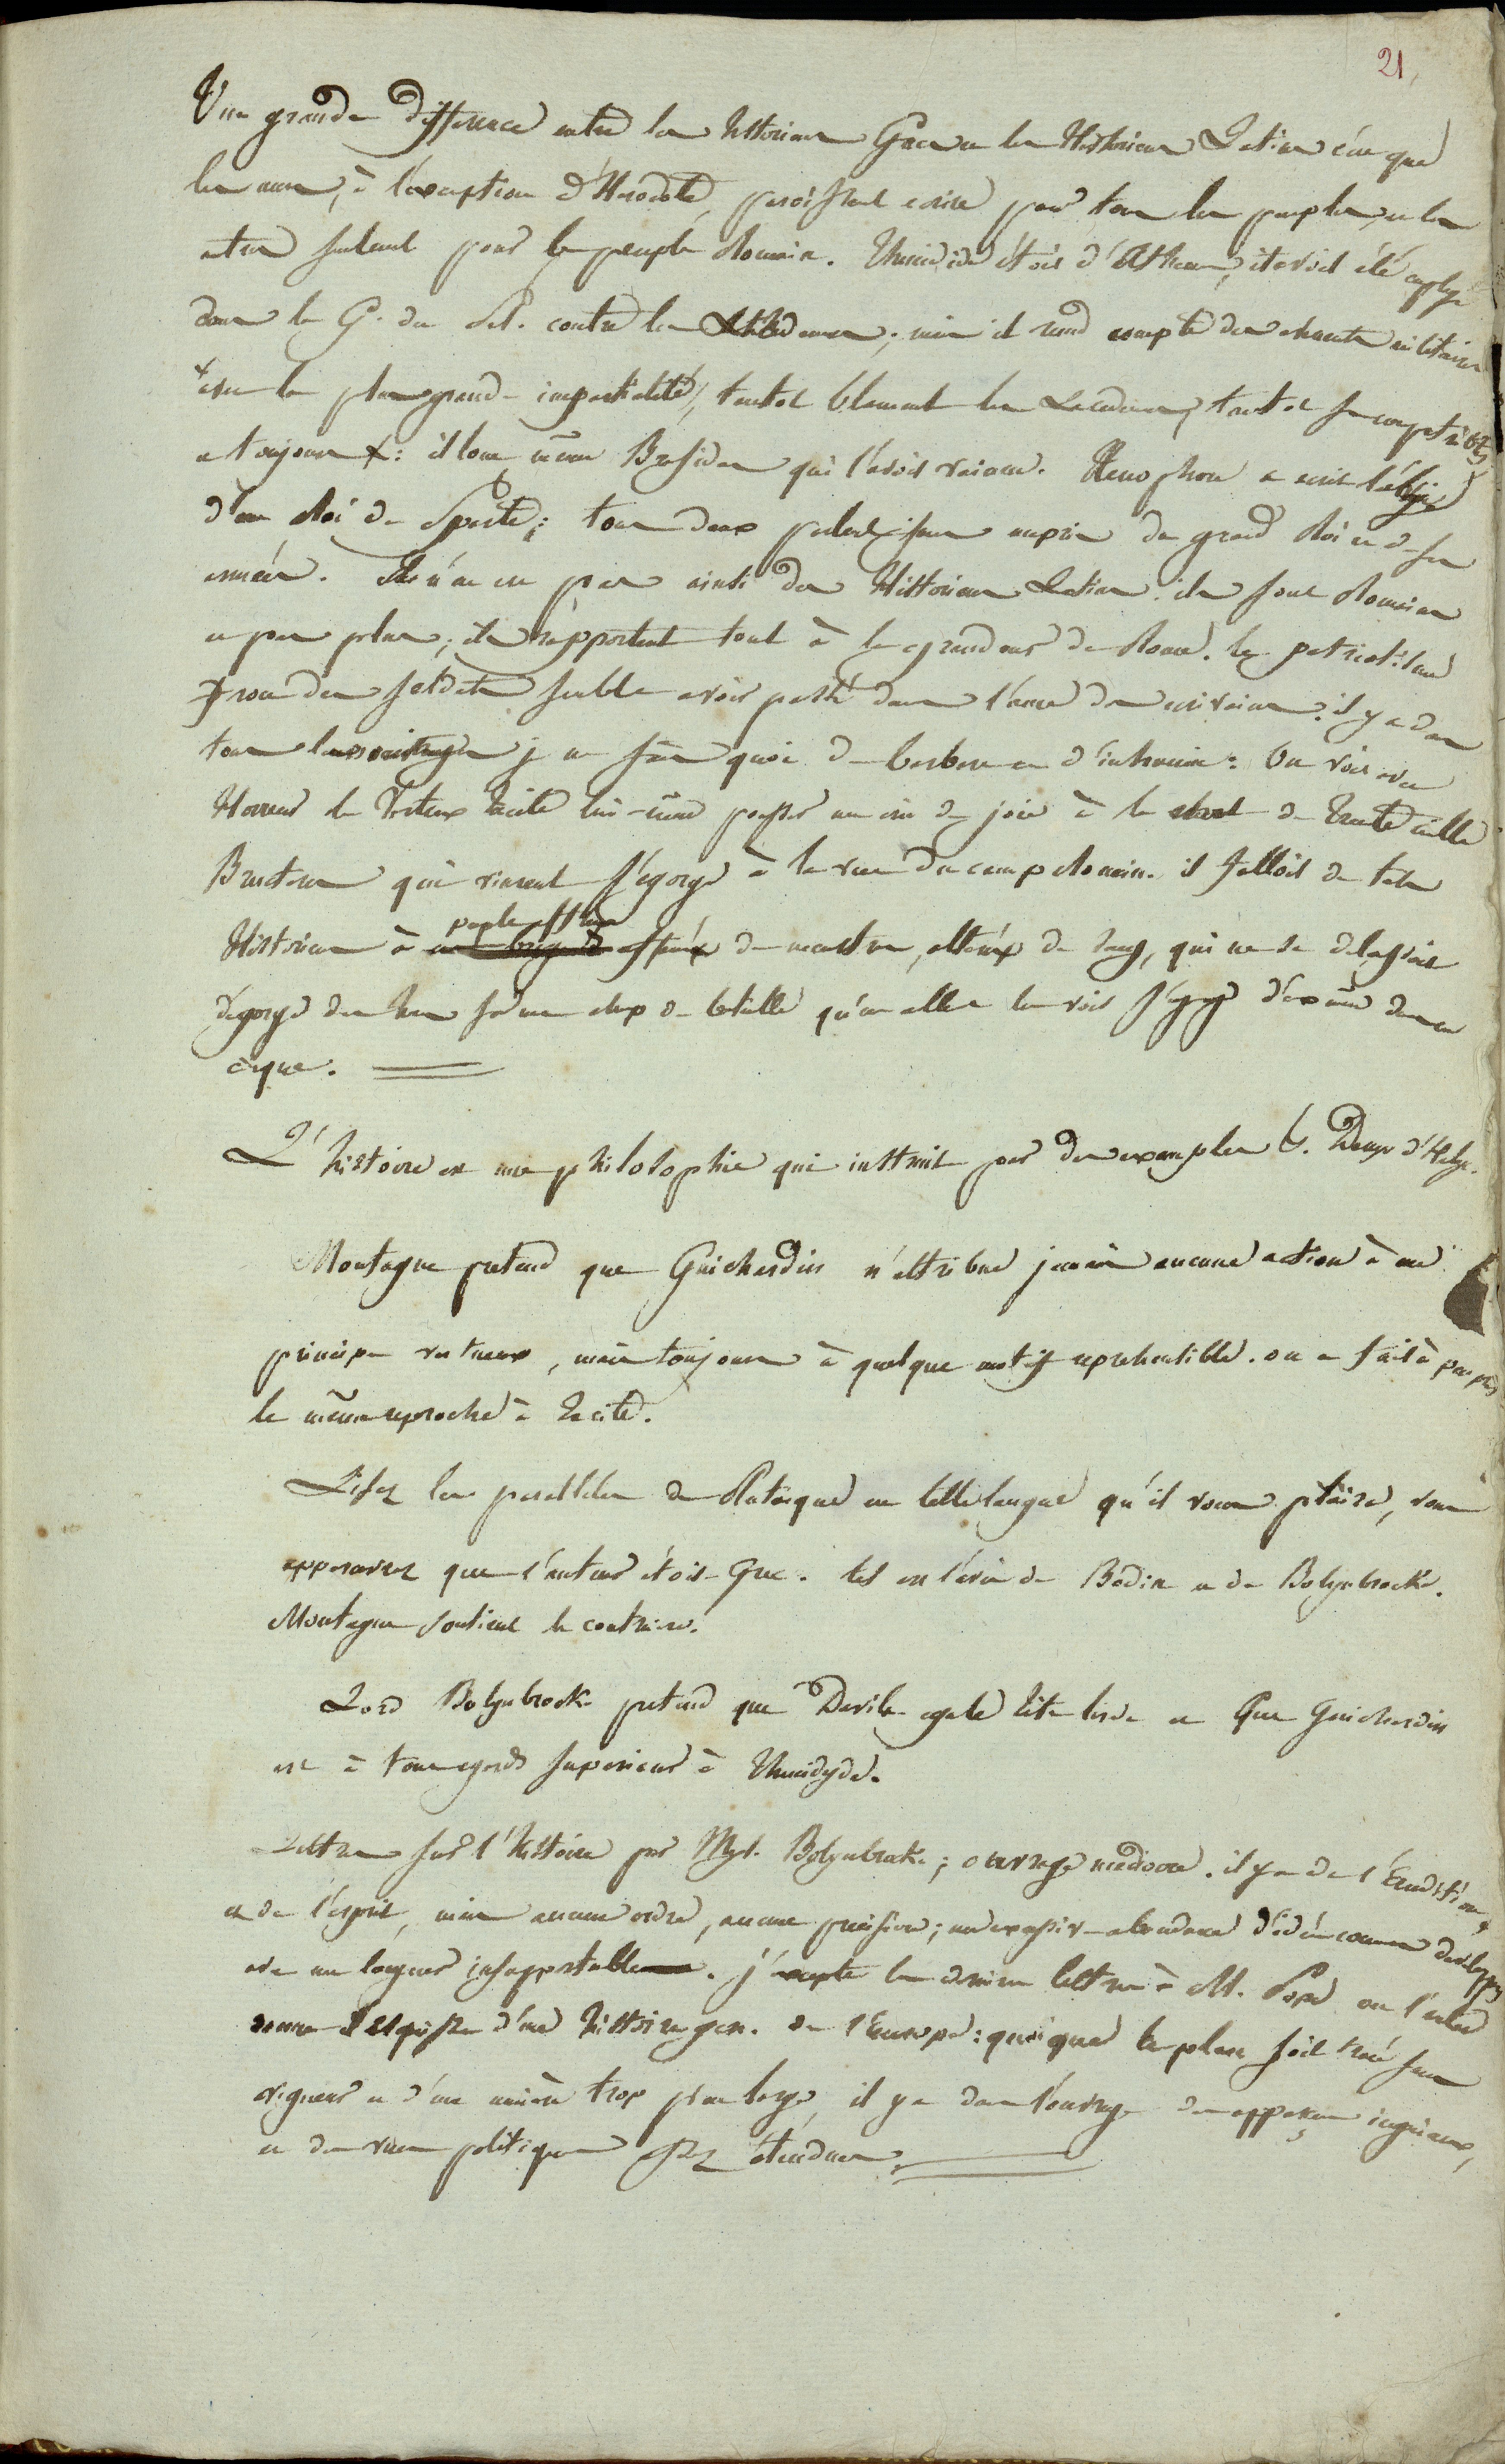 21.
Une grande difference entre les historiens Grecs et les Historiens Latins c'est que
les uns, à l'exception d'Herodote, paroissent ecrire pour tous les peuples, et les
autres seulement pour le peuple Romain. Thucidide étoit d'Athenes, il avoit été employé
dans la G. du Pel. contre les Lacedemon.; mais il rend compte des evenements militaires
avec la plus grande impartialité, tantot blamant les Lacedem., tantot ses compatriotes
et toujours +: il loue même Brasidas qui l'avoit vaincu. Xenophon a ecrit l'éloge
d'un Roi de Sparte; tous deux parlent sans mepris du grand Roi et de ses
armées. Il n'en est pas ainsi des Historiens Latins. ils sont Romains
et pas plus; ils rapportent tout à la grandeur de Rome. le patriotisme
des soldats semble avoir passé dans l'ame des ecrivains. il y a dans
tous les ouvrages je ne sais quoi de barbare et d'inhumain: On voit avec
Horreur le Vertueux Tacite lui-même pousser un cri de joie à la mort de Trente mille
Bructeres qui vinrent s'égorger à la vue du camp Romain. il falloit de tels
Historiens à peuple de monstres, altérés de sang, qui ne se delassoit
d'égorger des hommes sur un champ de bataille qu'en allant les voir s'égorger dans un
cirque.
L'histoire est une philosophie qui instruit par des exemples. Denys d'Halyc.
Montagne pretend que Guichardin n'attribue jamais aucune action à un
principe vertueux, mais toujours à quelque motif reprehensible. on a fait à peu près
le même reproche à Tacite.
Lisez les paralleles de Plutarque en telle langue qu'il vous plaira, vous
apperceverez que l'auteur étoit Grec. tel est l'avis de Bodin et de Bolynbrocke.
Montagne soutient le contraire.
Lord Bolynbrocke pretend que Davila egale Tite live et Que Guichardin
est à tous egards superieur à Thucidyde.
Lettres sur l'histoire par Myl. Bolynbrocke; ouvrage mediocre. il y a de l'Erudition,
et de l'esprit, mais aucun ordre, aucune precision; une excessive abondance d'idées communes developpées
avec une longueur insupportable. j'excepte la derniere lettre à M. Pope ou l'auteur
donne l'esquisse d'une histoire gen. de l'Europe: quoique le plan soit tracé sans
vigueur et d'une maniere trop peu large, il y a dans l'ouvrage des apperçus ingenieux,
et des vues politiques assez étendues.